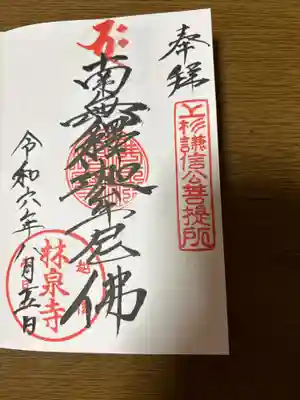 奉拝
上杉謙信公菩提所
南無釋迦牟尼佛
林泉寺
令和六年八月五日